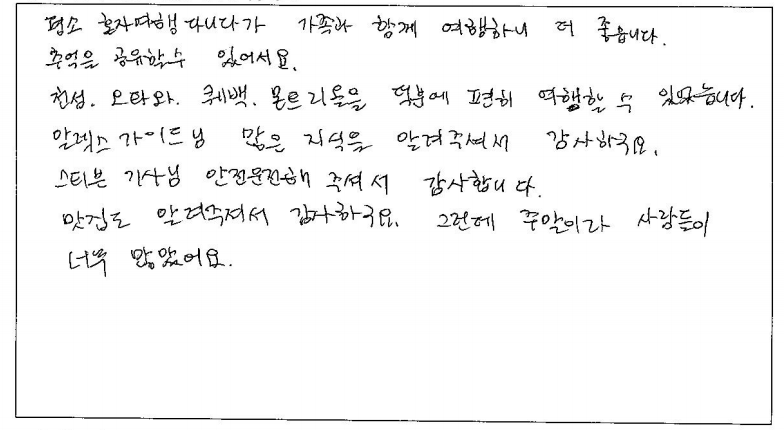 평소 혼자여행 다니다가 가족과 함께 여행하니 더 좋습니다.
추억을 공유할수 있어서요.
천섬. 오타와. 퀘백. 몬트리올을 덕분에 편히 여행할 수 있었습니다.
알렉스 가이드님 많은 지식을 알려주셔서 감사하구요.
스티븐 기사님 안전운전해 주셔서 감사합니다.
맛집도 알려주셔서 감사하구요. 그런데 주말이라 사람들이
너무 많았어요.